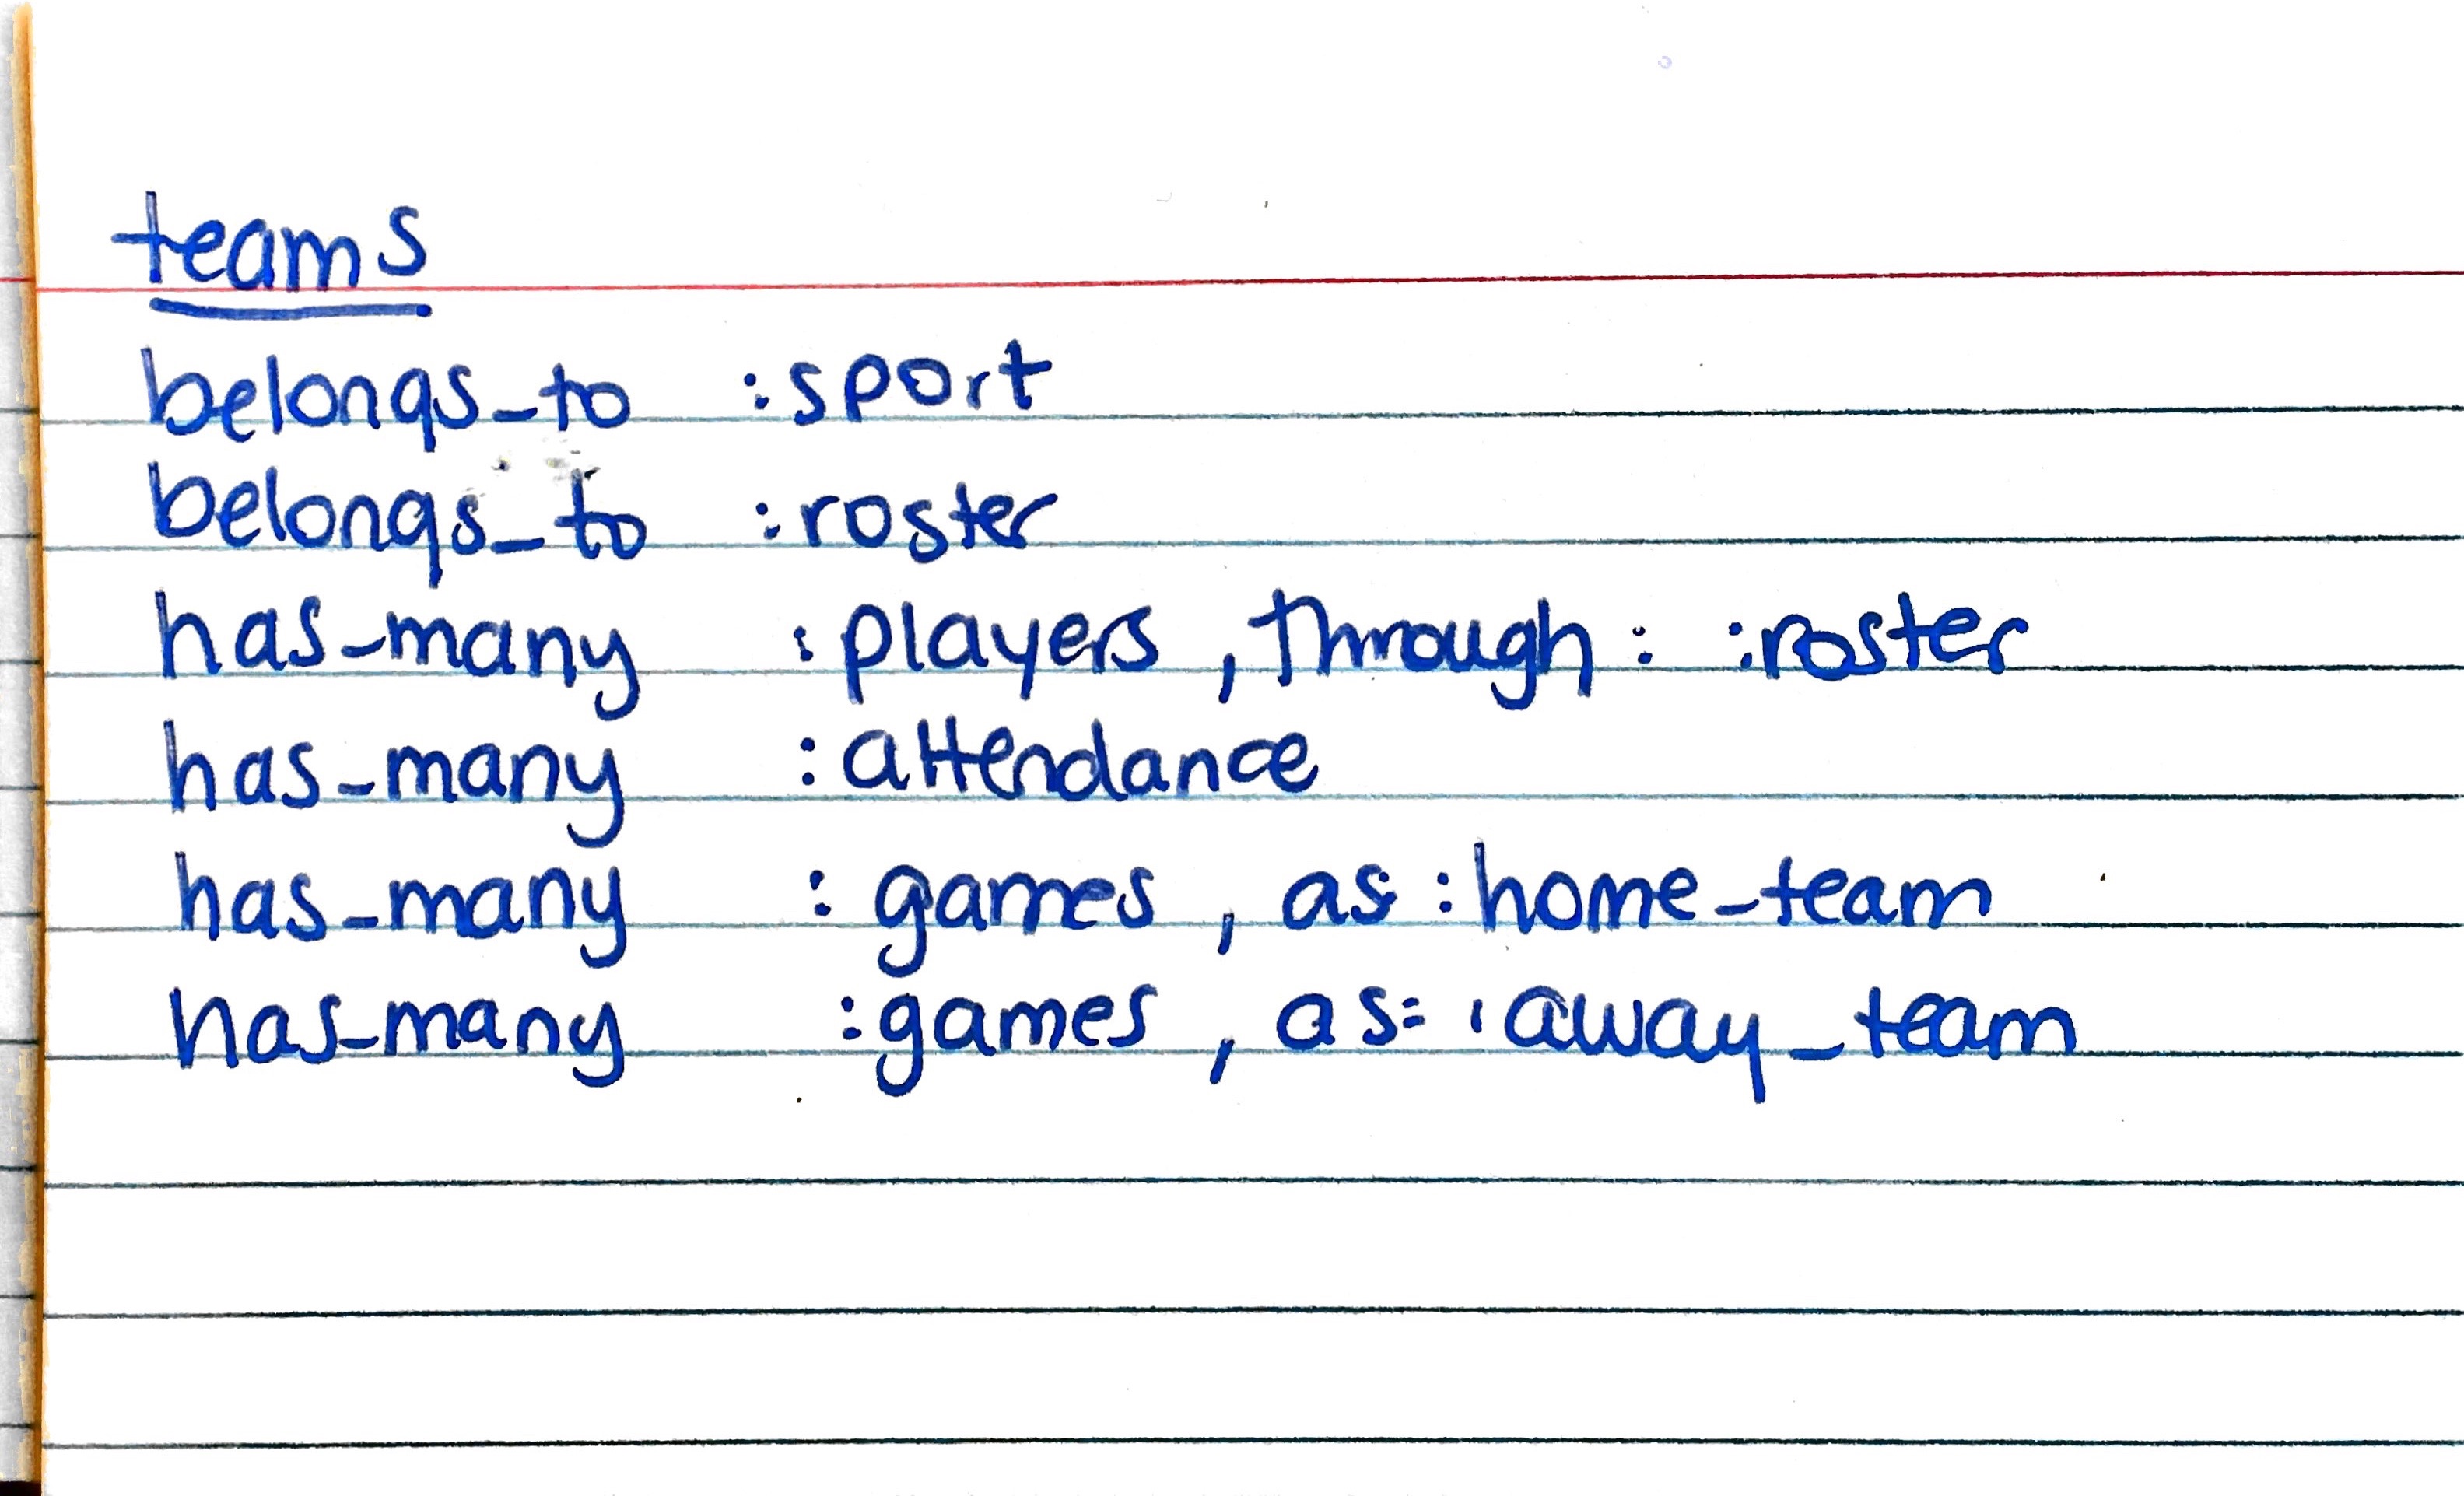 teams
belongs_to :sport
belongs_to :roster
has_many :players, through: :roster
has_many :attendance
has_many :games, as: :home_team
has_many :games, as: :away_team